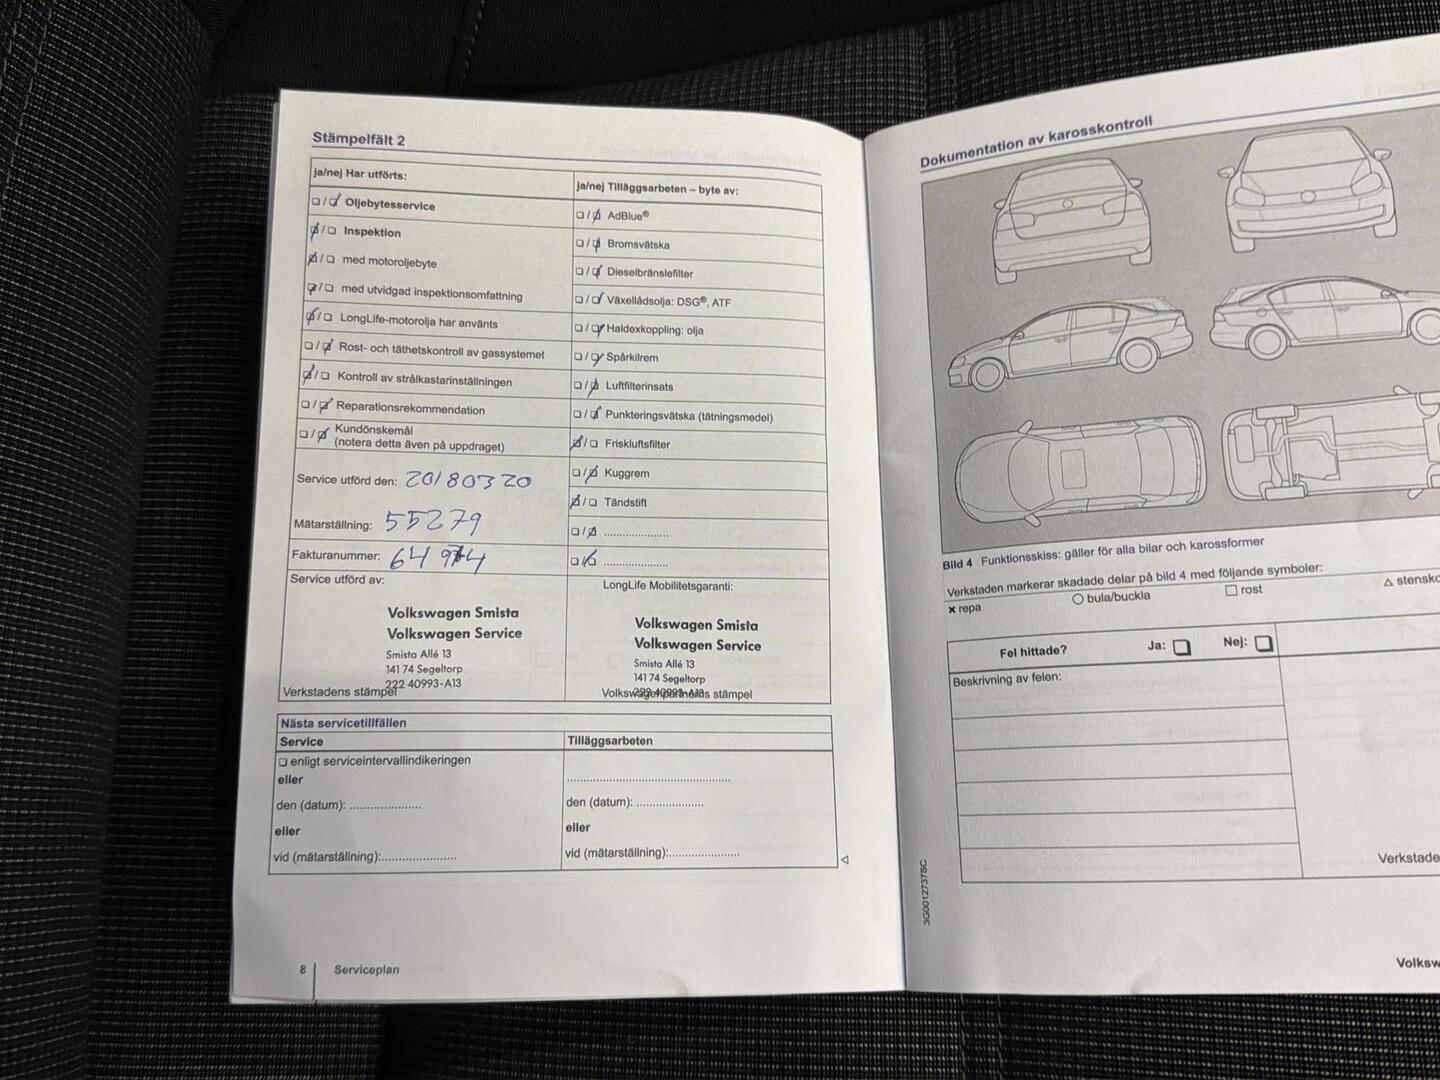 Stämpelfält 2
ja/nej Har utförts:
❏/❏ Oljebytesservice
❏/❏ Inspektion
❏/❏ med motoroljebyte
❏/❏ med utvidgad inspektionsomfattning
❏/❏ LongLife-motorolja har använts
❏/❏ Rost- och täthetskontroll av gassystemet
❏/❏ Kontroll av strålkastarinställningen
❏/❏ Reparationsrekommendation
❏/❏ Kundönskemål
(notera detta även på uppdraget)
Service utförd den: 20180320
Mätarställning: 55279
Fakturanummer:
Service utförd av:
Volkswagen Smista
Volkswagen Service
Smista Allé 13
141 74 Segeltorp
222 40993-A13
Verkstadens stämpel
ja/nej Tilläggsarbeten – byte av:
❏/❏ AdBlue®
❏/❏ Bromsvätska
❏/❏ Dieselbränslefilter
❏/❏ Växellådsolja: DSG®, ATF
❏/❏ Haldexkoppling: olja
❏/❏ Spårkilrem
❏/❏ Luftfilterinsats
❏/❏ Punkteringsvätska (tätningsmedel)
❏/❏ Friskluftsfilter
❏/❏ Kuggrem
❏/❏ Tändstift
❏/❏ ......................
❏/❏ ......................
LongLife Mobilitetsgaranti:
Volkswagen Smista
Volkswagen Service
Smista Allé 13
141 74 Segeltorp
222 40993-A13
Volkswagenpartnerns stämpel
Nästa servicetillfällen
Service
❏ enligt serviceintervallindikeringen
eller
den (datum): ......................
eller
vid (mätarställning):.......................
Tilläggsarbeten
..................................................
den (datum): ....................
eller
vid (mätarställning):......................
8 Serviceplan
Dokumentation av karosskontroll
Bild 4 Funktionsskiss: gäller för alla bilar och karossformer
Verkstaden markerar skadade delar på bild 4 med följande symboler:
× repa ○ bula/buckla □ rost △ stensko
Fel hittade? Ja: ❏ Nej: ❏
Beskrivning av felen:
Verkstade
3G0012737SC
Volksw